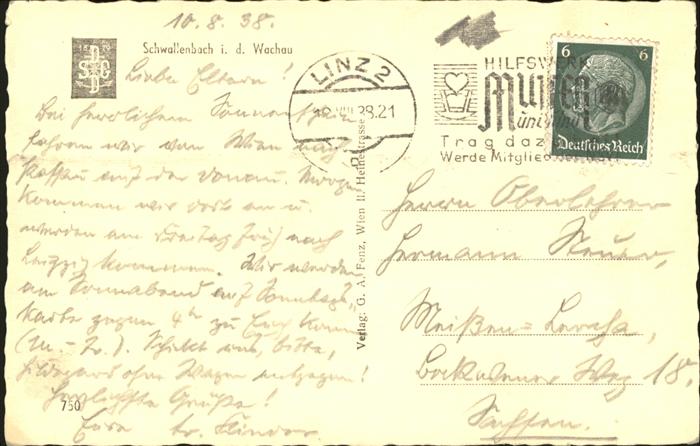 10. 8. 38.
Schwallenbach i. d. Wachau
Liebe Eltern!
Bei herrlichem Sonnenschein
fahren wir von Wien nach
Passau auf der Donau. Morgen
kommen wir dort an u.
werden am Freitag früh nach
Leipzig kommen. Wir werden
am Sonnabend auf Sonntags-
karte gegen 4 zu Euch kommen
Schickt uns, bitte,
Hildegard ohne Wagen entgegen!
Herzlichste Grüße!
Eure Kinder
750
Verlag: G. A. Fenz, Wien II, Heinestrasse
LINZ 2
VIII 38.21
HILFSWERK
MUTTER
und Kind
Trag daz
Werde Mitglied
6 6
Deutsches Reich
Herrn Oberlehrer
Hermann
Meißen-
Weg 18.
Sachsen.